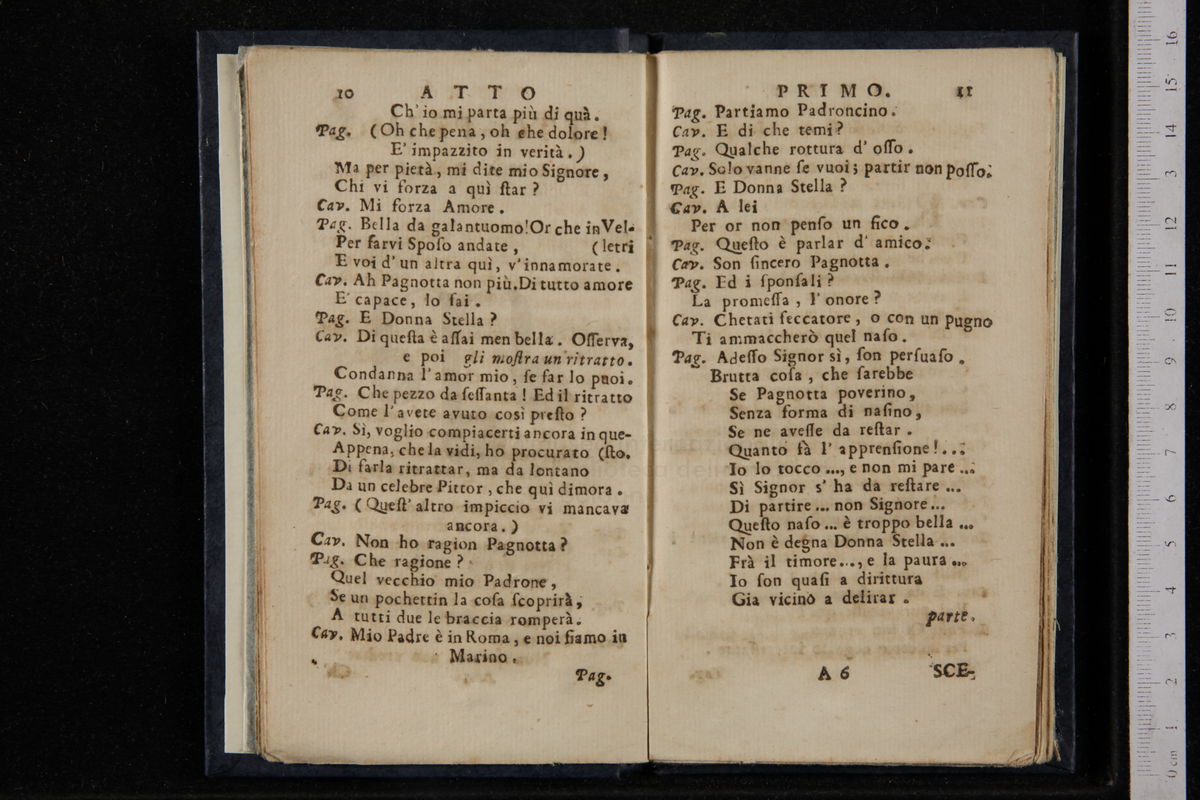 10 ATTO
Ch' io mi parta più di quà.
Pag. (Oh che pena, oh che dolore!
E' impazzito in verità.)
Ma per pietà, mi dite mio Signore,
Chi vi forza a quì ſtar?
Cav. Mi forza Amore.
Pag. Bella da galantuomo! Or che in Vel-
Per farvi Spoſo andate, (letri
E voi d' un altra quì, v' innamorate.
Cav. Ah Pagnotta non più. Di tutto amore
E' capace, lo ſai.
Pag. E Donna Stella?
Cav. Di queſta è aſſai men bella. Oſſerva,
e poi gli moſtra un ritratto.
Condanna l' amor mio, ſe far lo puoi.
Pag. Che pezzo da ſeſſanta! Ed il ritratto
Come l' avete avuto così preſto?
Cav. Sì, voglio compiacerti ancora in que-
Appena, che la vidi, ho procurato (ſto.
Di farla ritrattar, ma da lontano
Da un celebre Pittor, che quì dimora.
Pag. (Queſt' altro impiccio vi mancava
ancora.)
Cav. Non ho ragion Pagnotta?
Pag. Che ragione?
Quel vecchio mio Padrone,
Se un pochettin la coſa ſcoprirà,
A tutti due le braccia romperà.
Cav. Mio Padre è in Roma, e noi ſiamo in
Marino.
Pag.
PRIMO. 11
Pag. Partiamo Padroncino.
Cav. E di che temi?
Pag. Qualche rottura d' oſſo.
Cav. Solo vanne ſe vuoi; partir non poſſo.
Pag. E Donna Stella?
Cav. A lei
Per or non penſo un fico.
Pag. Queſto è parlar d' amico.
Cav. Son ſincero Pagnotta.
Pag. Ed i ſponſali?
La promeſſa, l' onore?
Cav. Chetati ſeccatore, o con un pugno
Ti ammaccherò quel naſo.
Pag. Adeſſo Signor sì, ſon perſuaſo.
Brutta coſa, che ſarebbe
Se Pagnotta poverino,
Senza forma di naſino,
Se ne aveſſe da reſtar.
Quanto fà l' apprenſione!...
Io lo tocco ..., e non mi pare ...
Sì Signor s' ha da reſtare ...
Di partire ... non Signore ...
Queſto naſo ... è troppo bella ...
Non è degna Donna Stella ...
Frà il timore..., e la paura ...
Io ſon quaſi a dirittura
Gia vicino a delirar.
parte.
A 6 SCE-